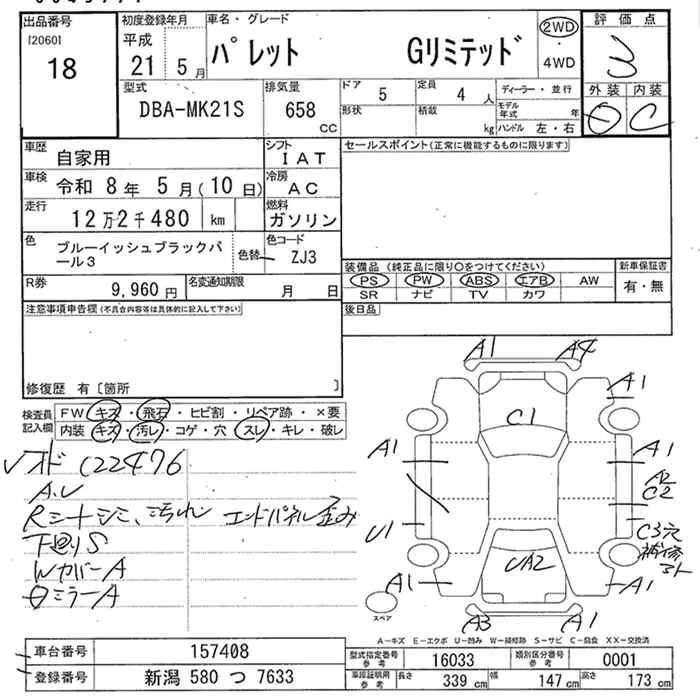 出品番号
[2060]
18
初度登録年月
平成
21 5 月
車名・グレード
パレット Gリミテッド
2WD
・
4WD
評価点
3
外装 内装
C
型式
DBA-MK21S
排気量
658
CC
ドア 5
定員 4 人
ディーラー・並行
形状
積載 kg
モデル年式 年
ハンドル 左・右
車歴
自家用
シフト
IAT
セールスポイント(正常に機能するものに限ります)
車検
令和 8 年 5 月(10 日)
冷房
AC
走行
12 万 2 千 480 km
燃料
ガソリン
色
ブルーイッシュブラックパール3
色替
色コード
ZJ3
装備品 (純正品に限り〇をつけてください)
新車保証書
PS PW ABS エアB AW
有・無
SR ナビ TV カワ
R券
9,960 円
名変通知期限
月 日
注意事項申告欄(不具合内容等は具体的に記入して下さい)
後日品
修復歴 有〔箇所 〕
検査員記入欄
FW キズ・飛石・ヒビ割・リペア跡・×要
内装 キズ・汚レ・コゲ・穴・スレ・キレ・破レ
C22476
A.U
Rシートシミ、汚れ エンドパネル歪み
下廻りS
WカバーA
ミラーA
A1 A4
A1
C1
A1 A1
A2
C2
U1
C3穴
補修
A1 UA2 A1
A3 A1
スペア
A-キズ E-エクボ U-凹み W-補修跡 S-サビ C-腐食 XX-交換済
車台番号
157408
登録番号
新潟 580 つ 7633
型式指定番号
参考
16033
類別区分番号
参考
0001
車庫証明用
参考
長さ 339 cm
幅 147 cm
高さ 173 cm